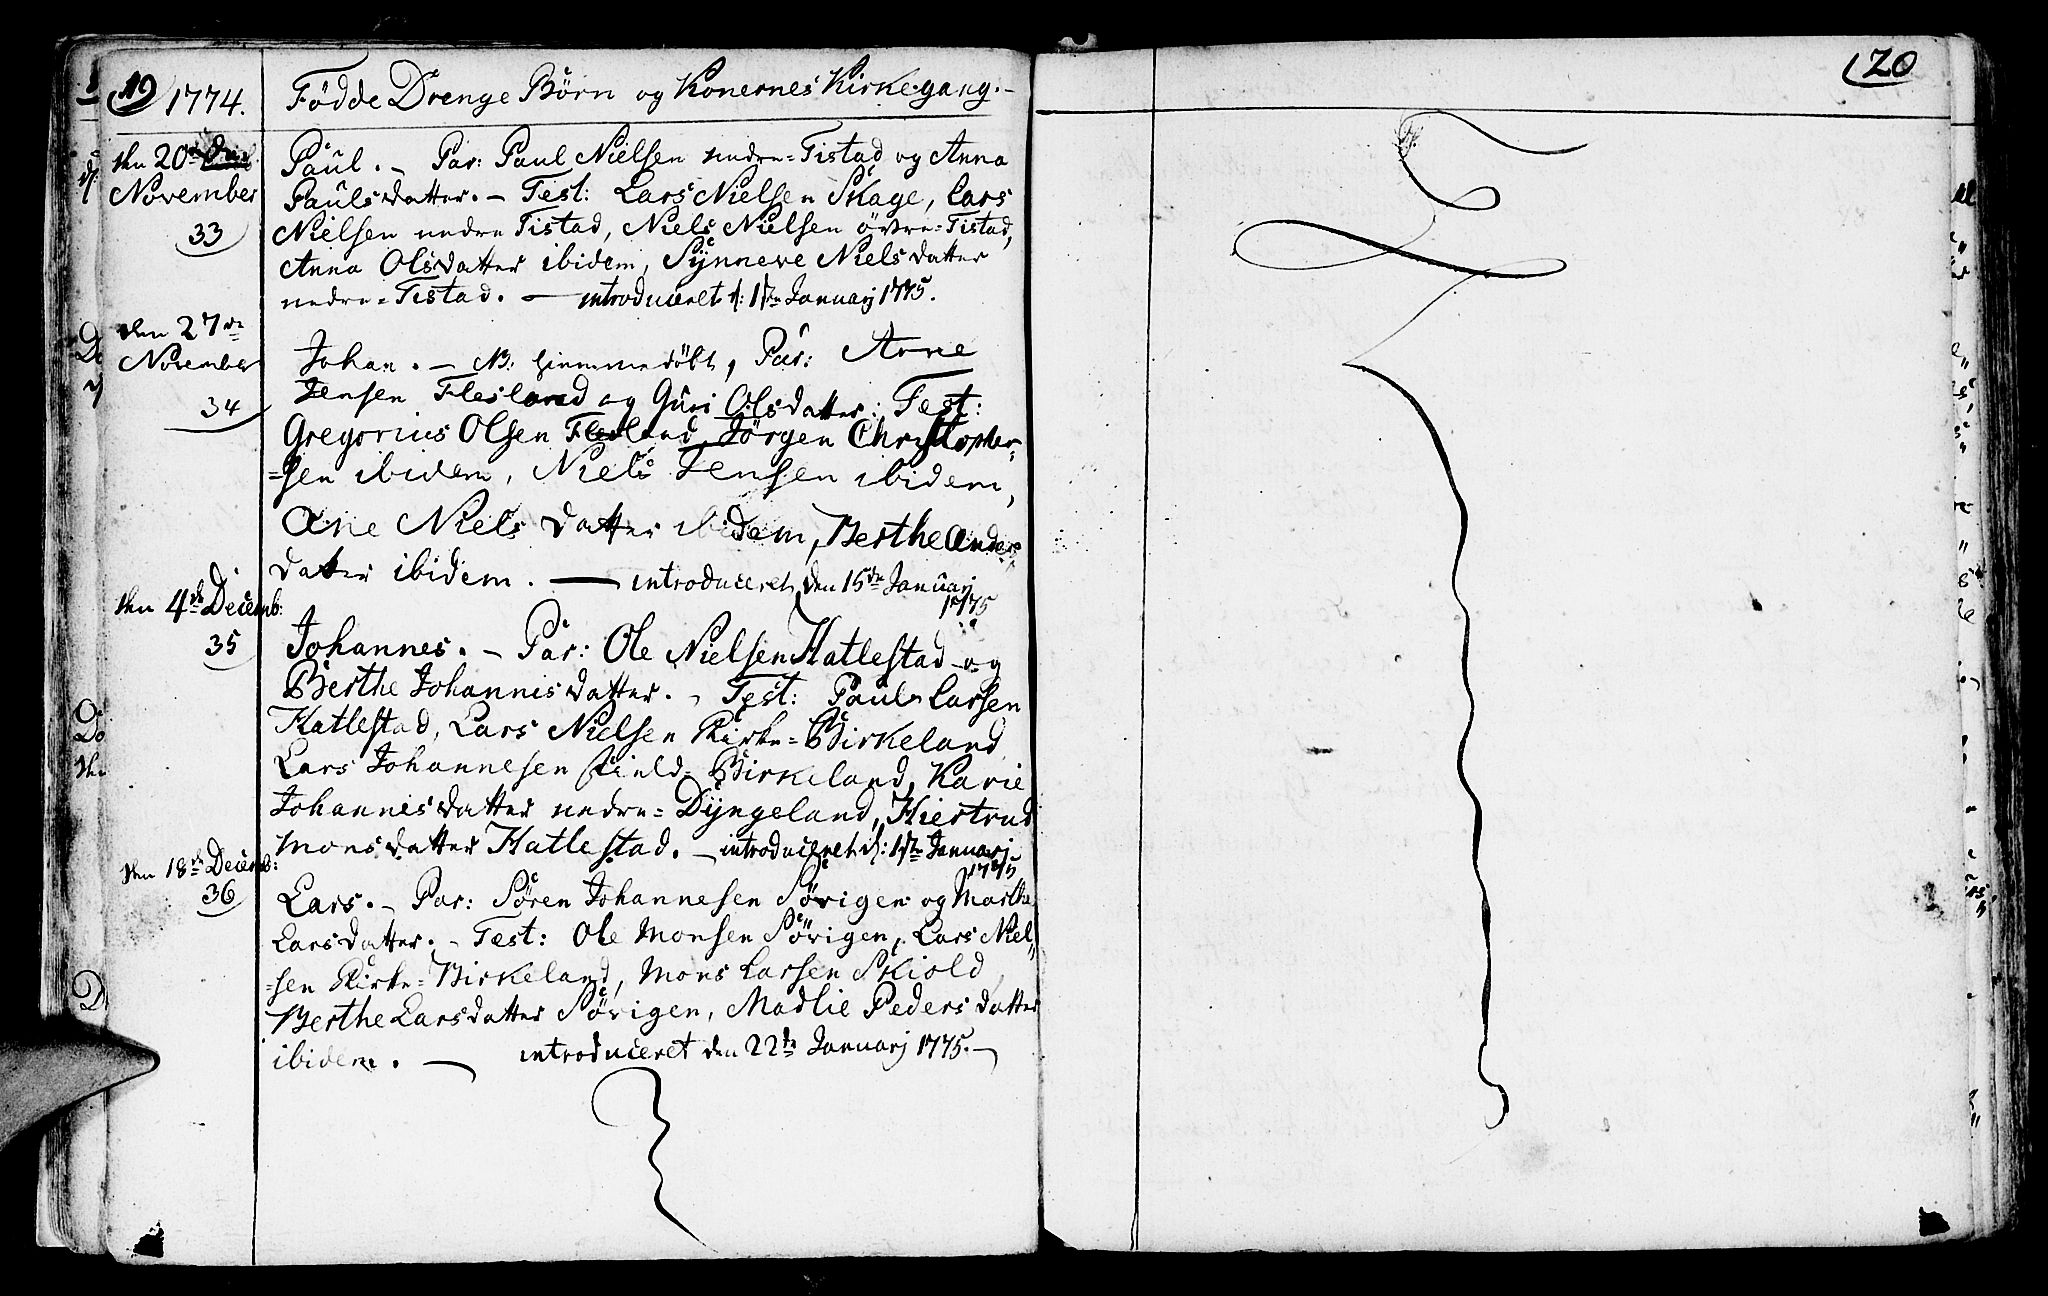 19
1774.
Födde Drenge Börn og Konernes Kirkegang.
den 20de
November
33
Paul. - Par: Paul Nielsen nedre=Tistad og Anna
Paulsdatter. - Test: Lars Nielsen Skage, Lars
Nielsen nedre Tistad, Niels Nielsen övre=Tistad,
Anna Olsdatter ibidem, Synneve Nielsdatter
nedre=Tistad. - introduceret d: 1ste Januarj 1775.
den 27de
November
34
Johan. - NB: hiemmedöbt, Par: Arne
Jensen Flesland og Guri Olsdatter: Test:
Gregorius Olsen Flesland, Jörgen Christopher-
=sen ibidem, Niels Jensen ibidem,
Ane Niels datter ibidem, Berthe Anders
datter ibidem. - introduceret den 15de Januarj
1775
den 4de Decemb:
35
Johannes. - Par: Ole Nielsen Hatlestad og
Berthe Johannisdatter. - Test: Paul Larsen
Hatlestad, Lars Nielsen Kirke=Birkeland
Lars Johannesen Field=Birkeland, Karie
Johannisdatter nedre=Dyngeland, Hiertrud
Monsdatter Hatlestad. - introduceret d: 1ste Januarj
1775
den 18de Decemb:
36
Lars. - Par: Sören Johannesen Sörigen og Marthe
Larsdatter. - Test: Ole Monsen Sörigen, Lars Niel-
=sen Kirke=Birkeland, Mons Larsen Skiold
Berthe Larsdatter Sörigen, Madlie Peders datter
ibidem. - introduceret den 22de Januarj 1775. -
20